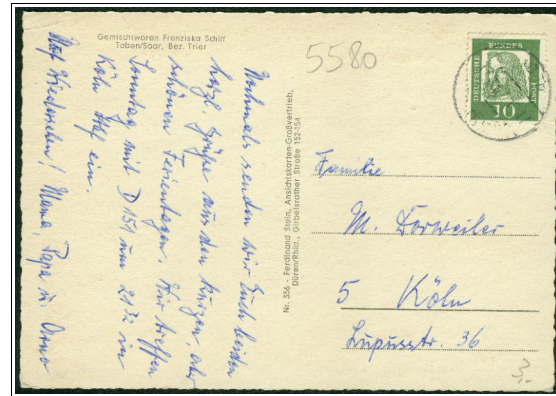 Gemischtwaren Franziska Schiff
Taben/Saar, Bez. Trier
5580
Nochmals senden wir Euch beiden
herzl. Grüße aus den kurzen, aber
schönen Ferientagen. Wir treffen
Sonntag mit D 151 um 21 in
Köln Hbf ein.
Auf Wiedersehen! Mama, Papa u.
Nr. 356 - Ferdinand Stoln, Ansichtskarten-Großvertrieb,
Düren/Rhld., Girbelsrather Straße 152-154
DEUTSCHE
BUNDES
POST
10
Familie
M. Dorweiler
5 Köln
Lupusstr. 36
3,-